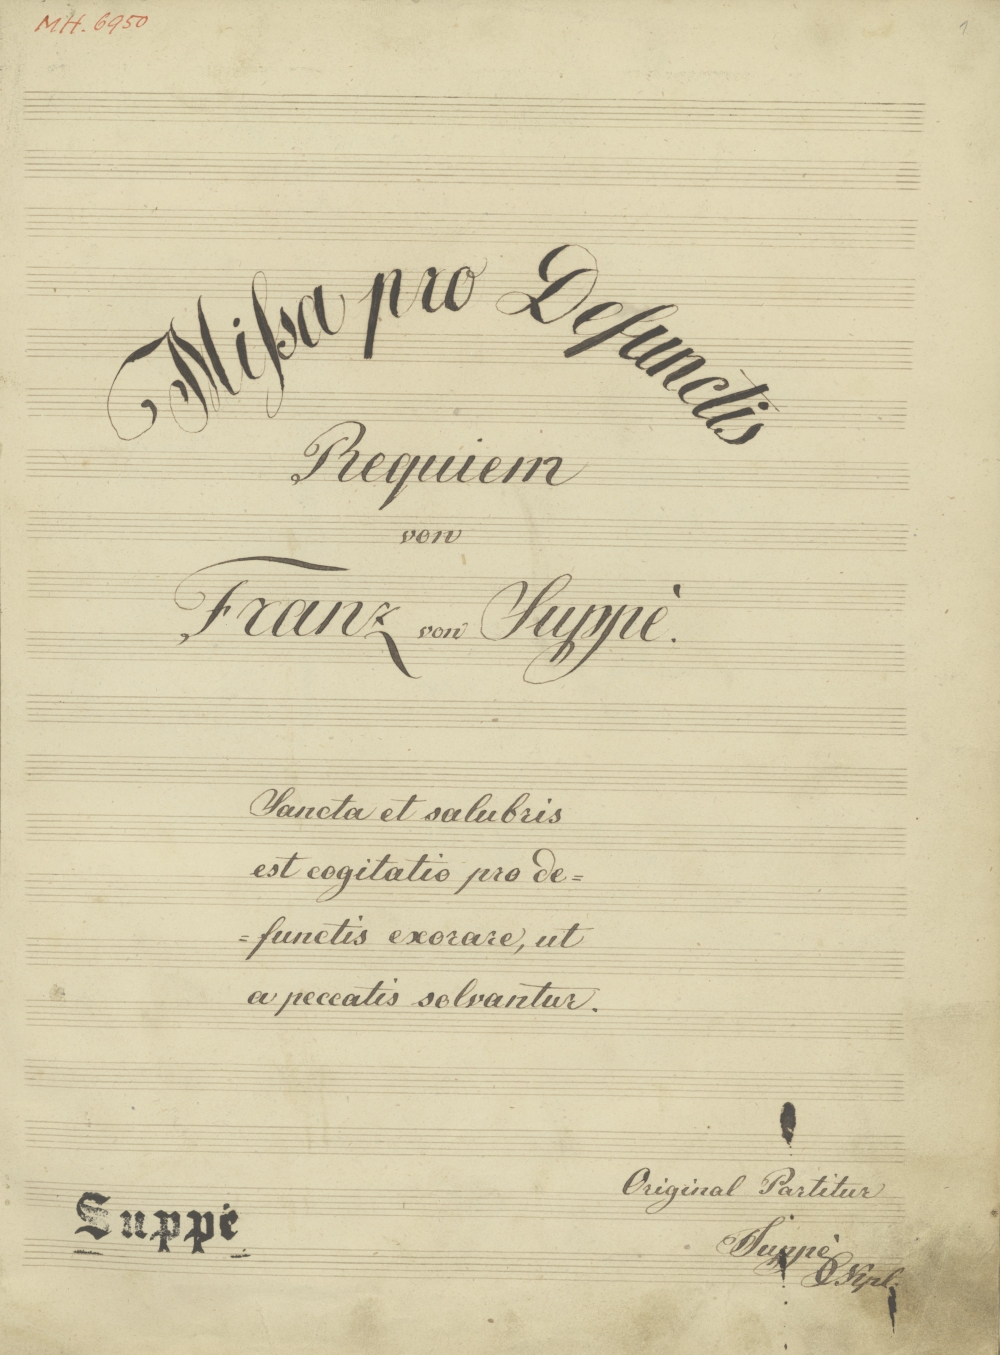 MH. 6950
1
Missa pro Defunctis
Requiem
von
Franz von Suppè.
Sancta et salubris
est cogitatio pro de=
=functis exorare, ut
a peccatis solvantur.
Original Partitur
Suppè
Suppè